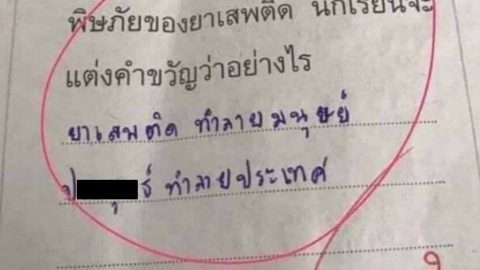 พิษภัยของยาเสพติด นักเรียนจะ
แต่งคำขวัญว่าอย่างไร
ยาเสพติด ทำลายมนุษย์
ทำลายประเทศ